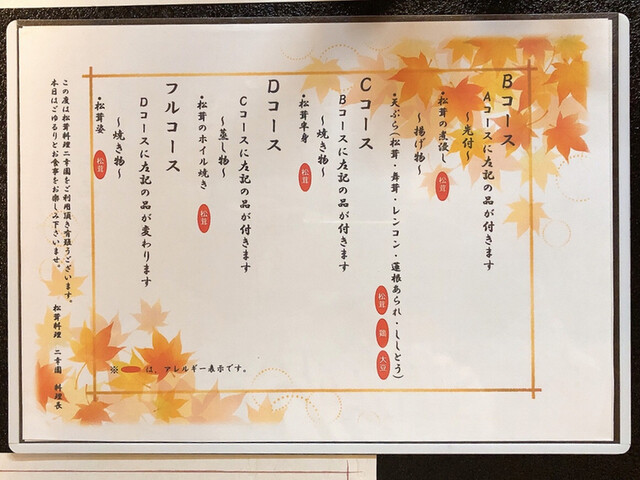 Bコース
Aコースに左記の品が付きます
〜先付〜
・松茸の煮浸し 松茸
〜揚げ物〜
・天ぷら(松茸・舞茸・レンコン・蓮根あられ・ししとう) 松茸 鶏 大豆
Cコース
Bコースに左記の品が付きます
〜焼き物〜
・松茸半身 松茸
Dコース
Cコースに左記の品が付きます
〜蒸し物〜
・松茸のホイル焼き 松茸
フルコース
Dコースに左記の品が変わります
〜焼き物〜
・松茸姿 松茸
※ は、アレルギー表示です。
この度は松茸料理二幸園をご利用頂き有難うございます。
本日はごゆるりとお食事をお楽しみ下さいませ。
松茸料理 二幸園 料理長